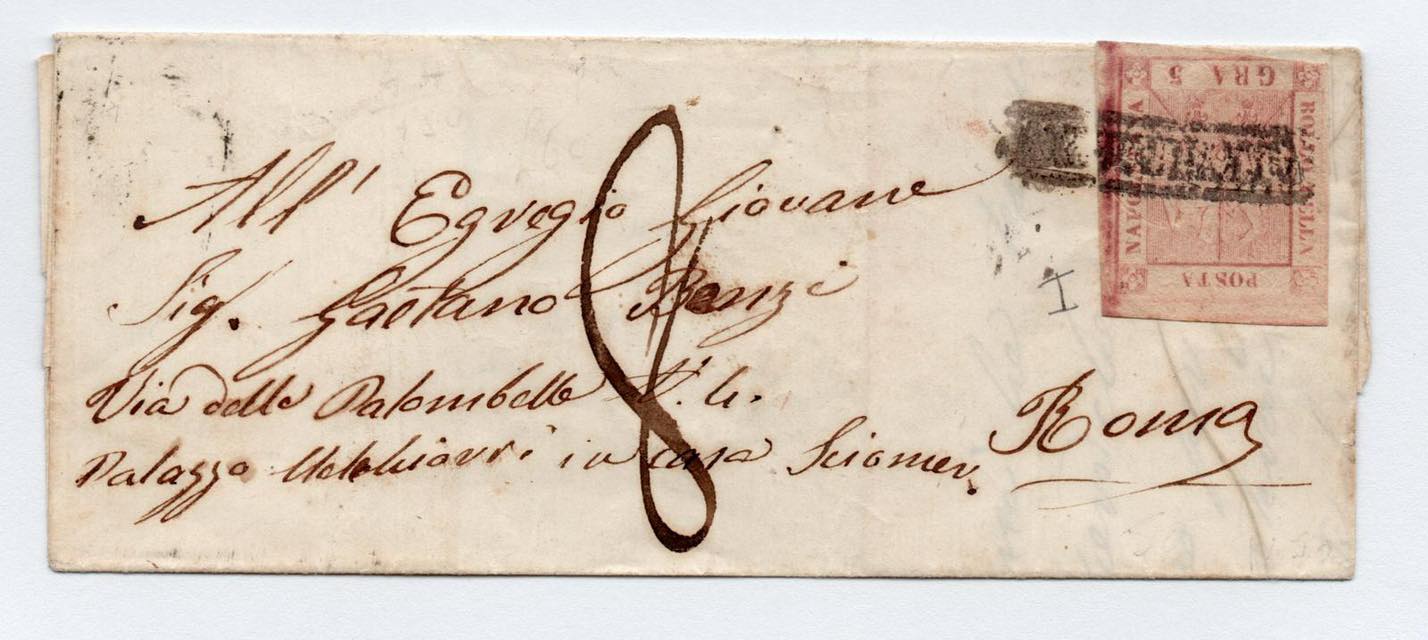 All' Egregio Giovane
Sig. Gaetano Benzi
Via delle Palombelle N. 4.
Palazzo Melchiorri in casa
Roma
8
I
GRA 5
BOLLO DELLA
POSTA
NAPOLETANA
ANNULLATO